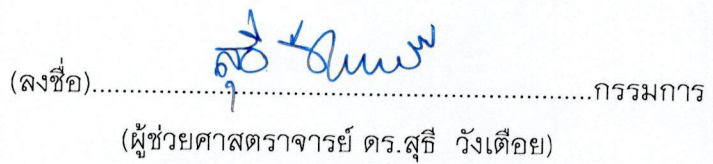 (ลงชื่อ)............................................................กรรมการ
(ผู้ช่วยศาสตราจารย์ ดร.สุธี วังเตือย)